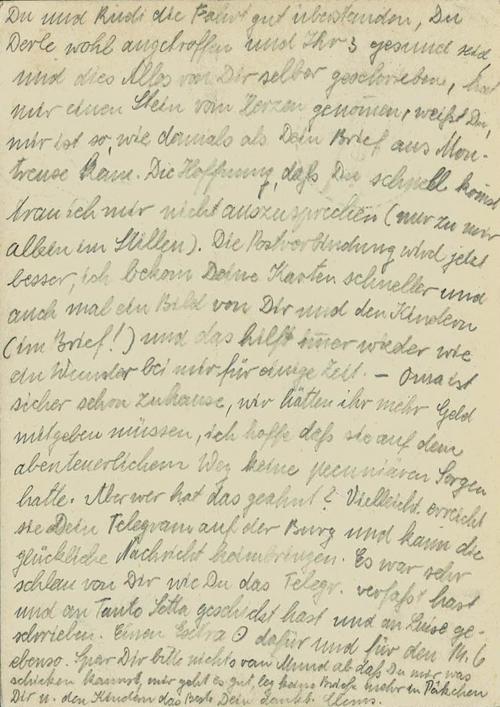 Du und Rudi die Fahrt gut überstanden, Du
Derle wohl angetroffen und Ihr 3 gesund seid,
und dies Alles von Dir selber geschrieben, hat
mir einen Stein vom Herzen genommen, weißt Du,
mir ist so, wie damals als Dein Brief aus Mon-
treuse kam. Die Hoffnung, daß Du schnell kommst
trau ich mir nicht auszusprechen (nur zu mir
allein im Stillen). Die Postverbindung wird jetzt
besser, ich bekom Deine Karten schneller und
auch mal ein Bild von Dir und den Kindern
(im Brief!) und das hilft immer wieder wie
ein Wunder bei mir für einige Zeit. – Oma ist
sicher schon zuhause, wir hätten ihr mehr Geld
mitgeben müssen, ich hoffe daß sie auf dem
abenteuerlichem Weg keine pecuniären Sorgen
hatte. Aber wer hat das geahnt? Vielleicht erreicht
sie Dein Telegram auf der Burg und kann die
glückliche Nachricht heimbringen. Es war sehr
schlau von Dir wie Du das Telegr. verfaßt hast
und an Tante geschickt hast und an Luise ge-
schrieben. Einen Extra dafür und für den 14. 6
ebenso. Spar Dir bitte nichts vom Mund ab daß Du mir was
schicken kannst, mir geht es gut, leg keine Briefe mehr in Päckchen
Dir u. den Kindern das Beste Dein dankb.